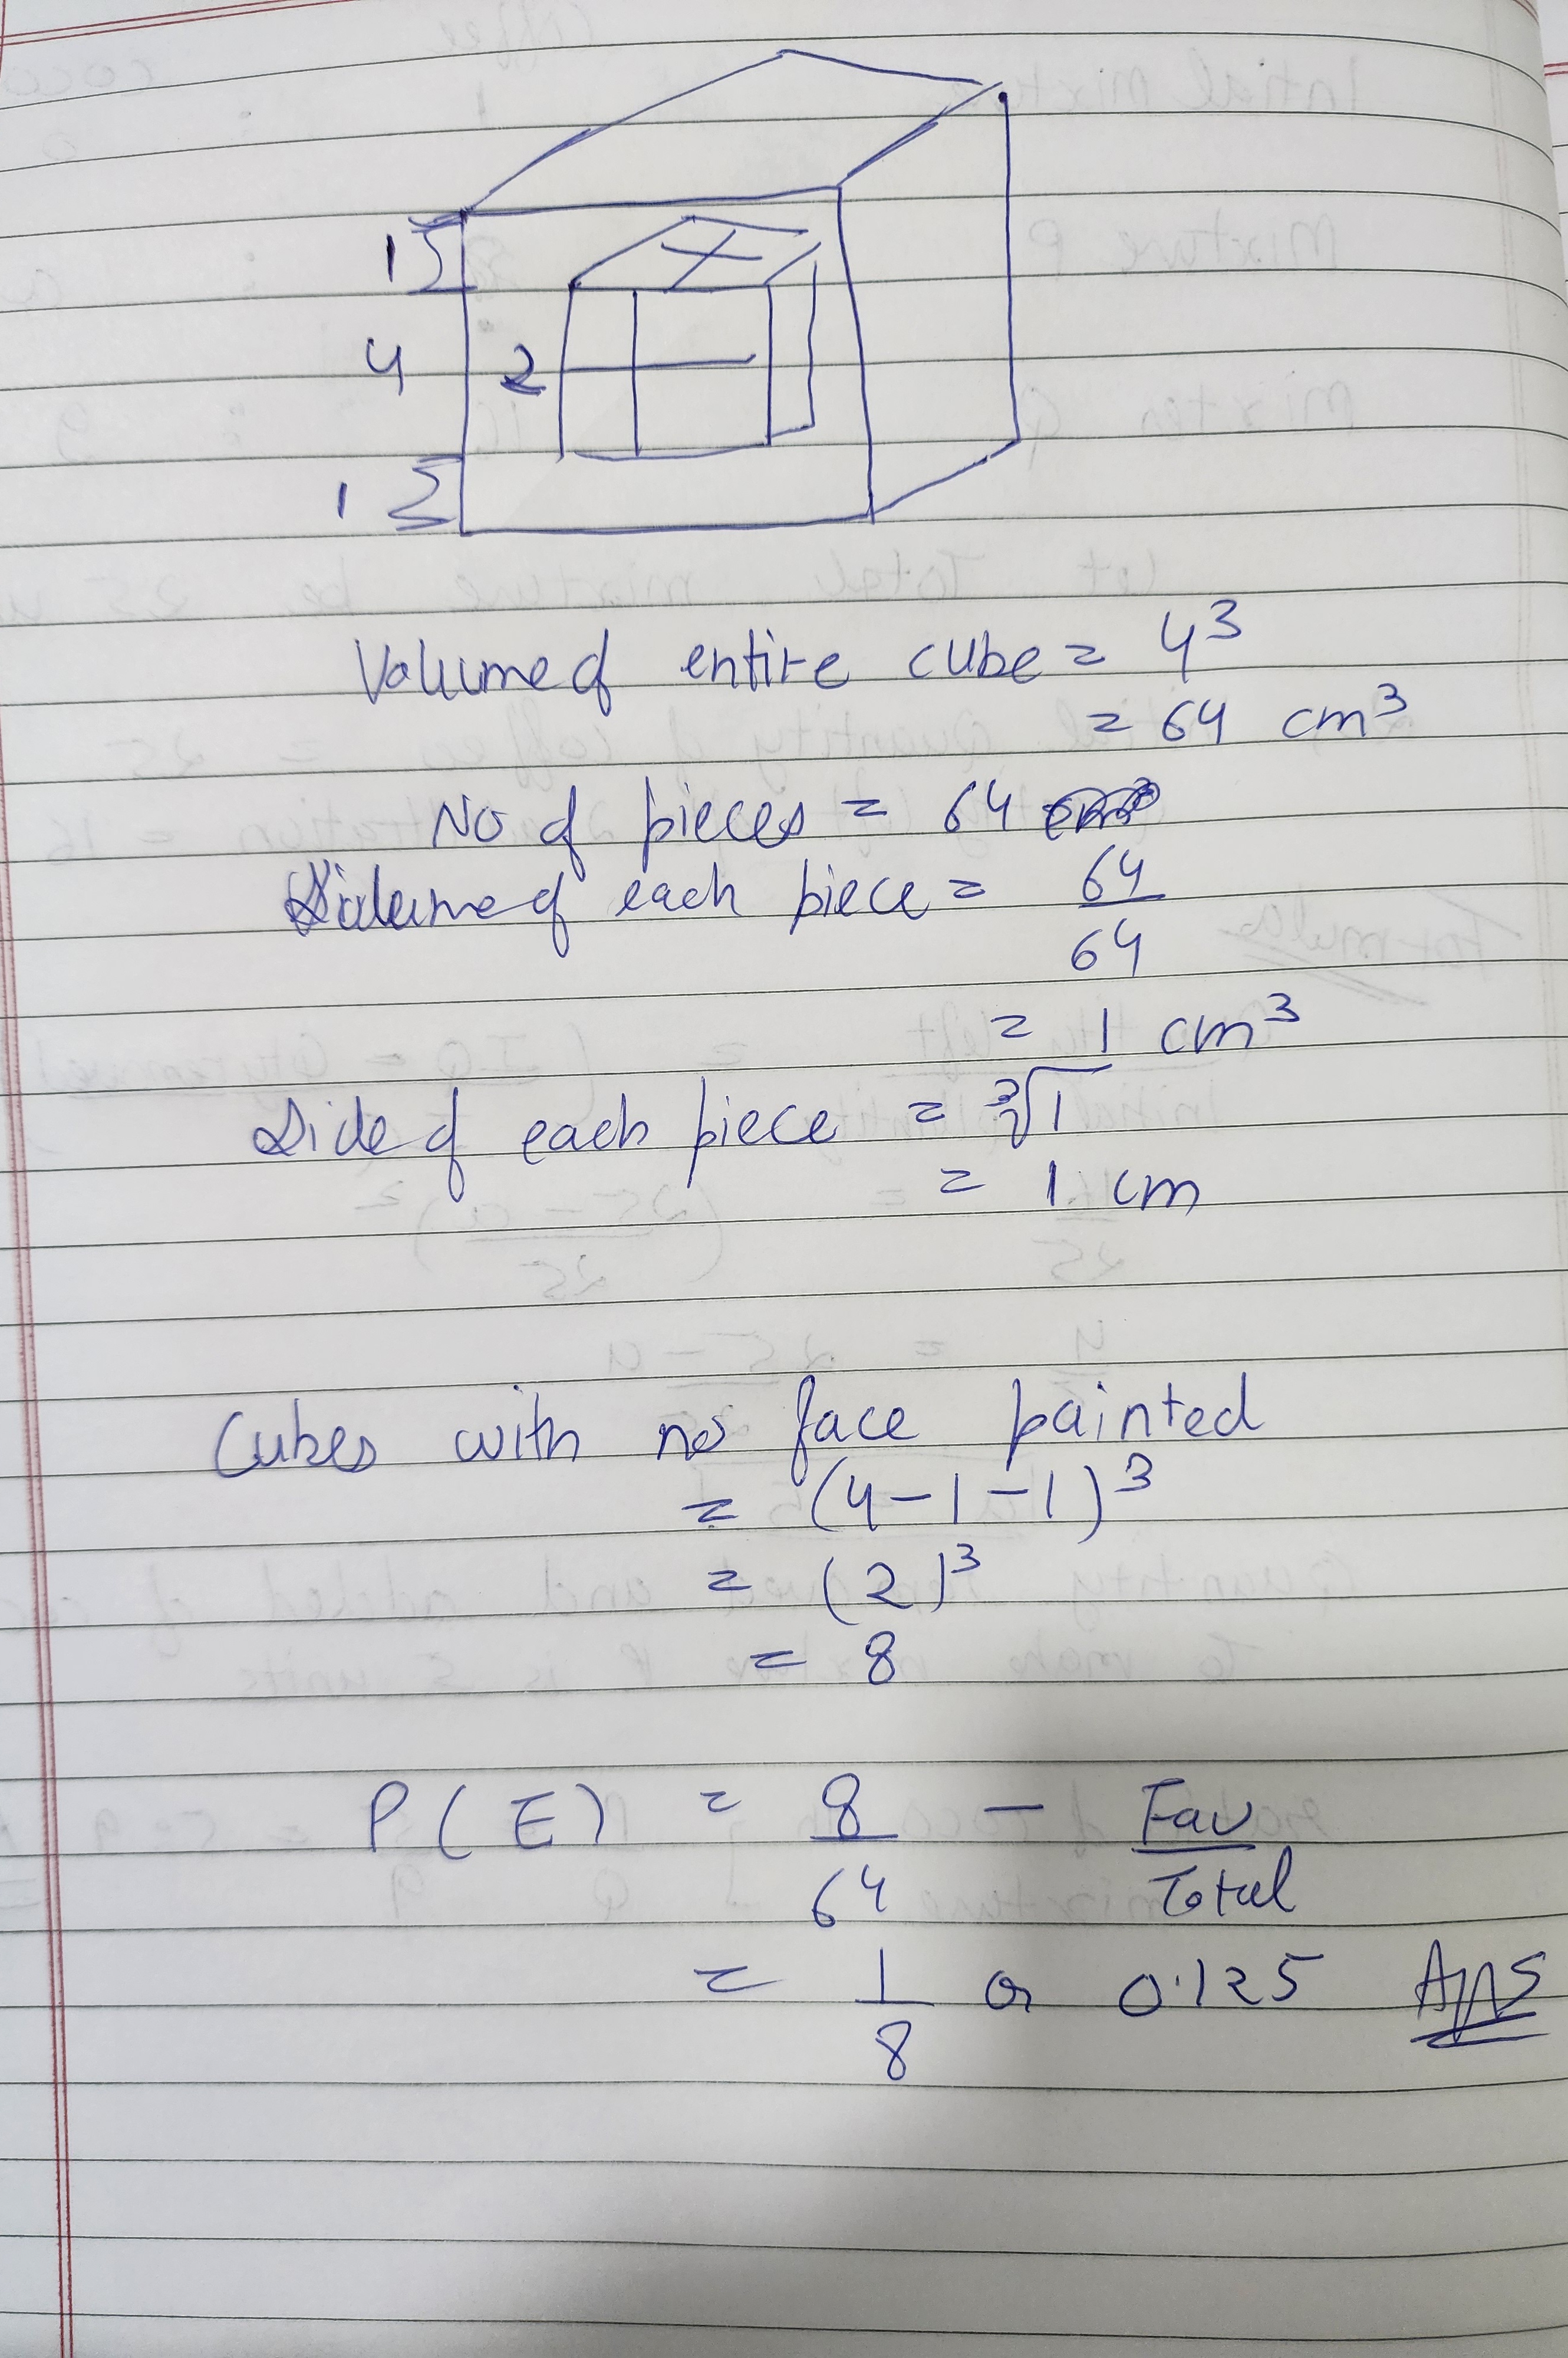 1
4 2
1
Volume of entire cube = 4³
= 64 cm³
No of pieces = 64
of each piece = 64
64
= 1 cm³
Side of each piece = ³√1
= 1 cm
Cubes with no face painted
= (4-1-1)³
= (2)³
= 8
P(E) = 8 - Fav
64 Total
= 1 or 0.125 Ans
8